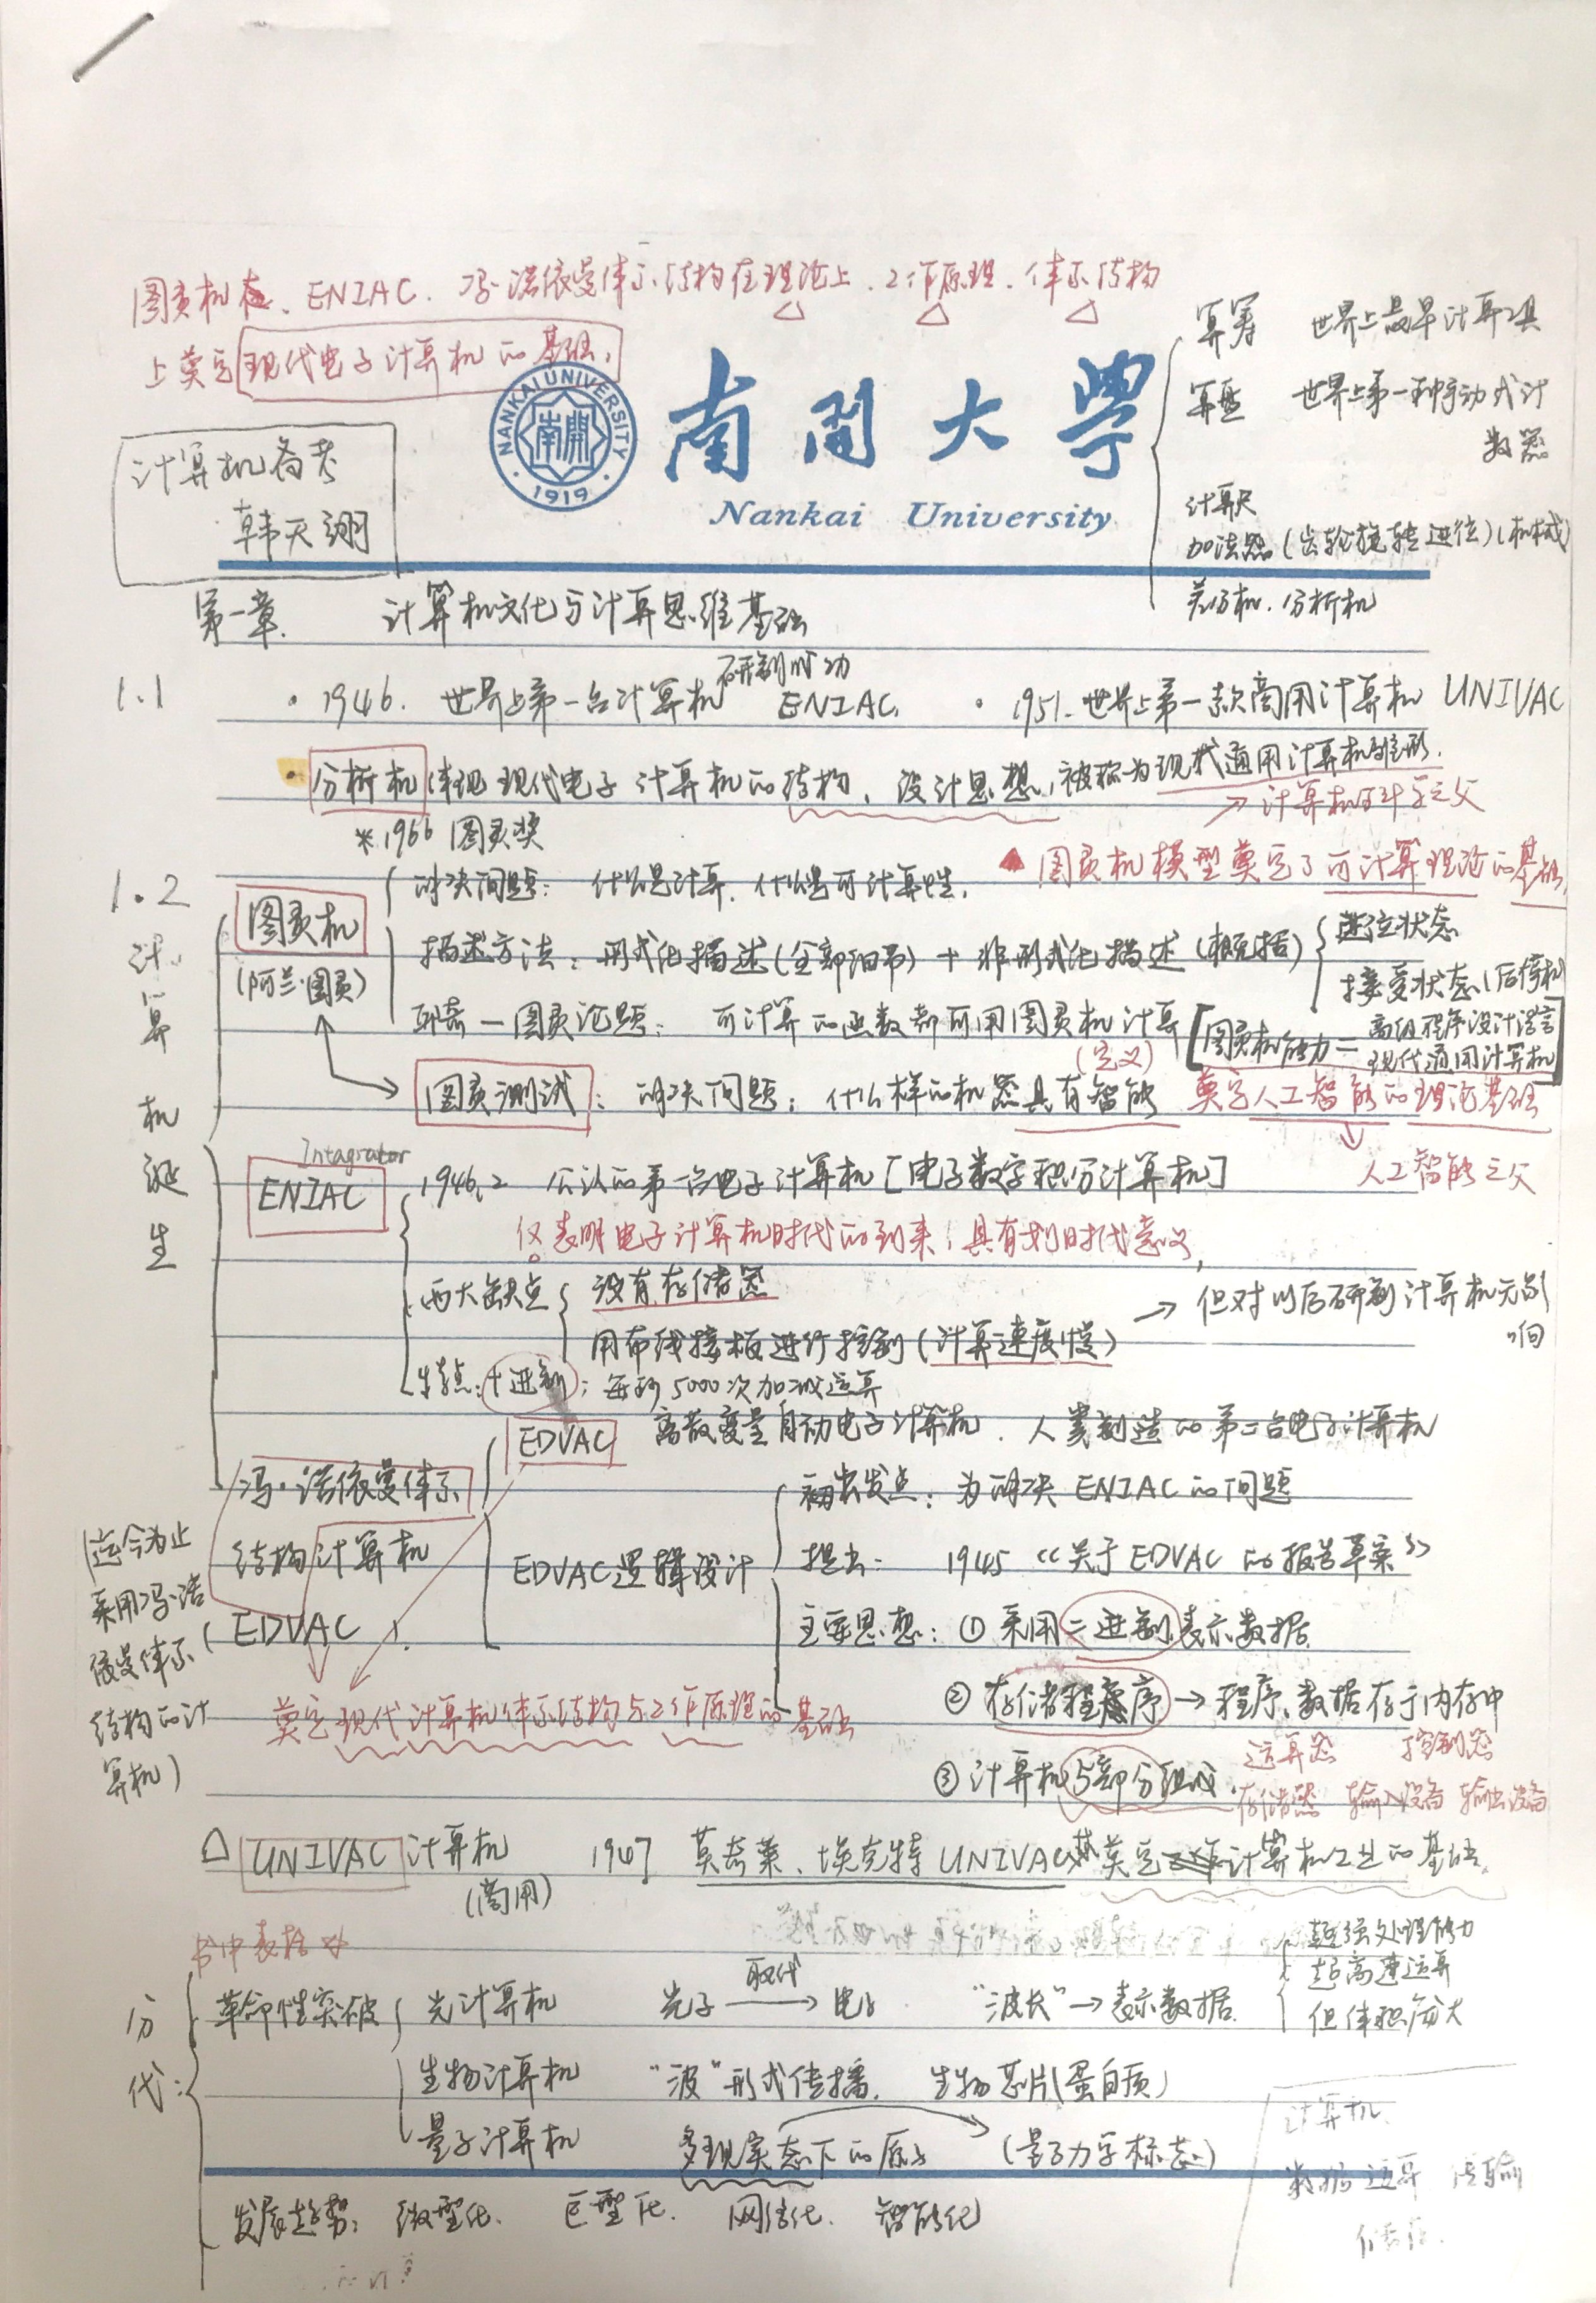 图灵机在、ENIAC、冯·诺依曼体系结构在理论上、工作原理、体系结构
上奠定现代电子计算机的基础,
算筹 世界上最早计算工具
算盘 世界上第一种手动式计
数器
计算尺
加法器(齿轮旋转进位)(机械)
差分机、分析机
NANKAI UNIVERSITY
南開
1919
南開大學
Nankai University
计算机备考
韩天翊
第一章. 计算机文化与计算思维基础
1.1 · 1946. 世界上第一台计算机研制成功 ENIAC. · 1951. 世界上第一款商用计算机 UNIVAC
· 分析机体现现代电子计算机的结构、设计思想,被称为现代通用计算机雏形.
→ 计算机科学之父
* 1966 图灵奖
1.2 计算机诞生
图灵机
(阿兰·图灵)
解决问题: 什么是计算、什么是可计算性.
▲ 图灵机模型奠定了可计算理论的基础.
描述方法: 形式化描述(全部细节) + 非形式化描述(概括)
进位状态
接受状态(后停机)
邱奇—图灵论题: 可计算的函数都可用图灵机计算
(定义)
[图灵机能力=高级程序设计语言
现代通用计算机]
图灵测试: 解决问题: 什么样的机器具有智能 奠定人工智能的理论基础
人工智能之父
Intagrator
ENIAC
1946.2 公认的第一台电子计算机[电子数字积分计算机]
仅表明电子计算机时代的到来,具有划时代意义,
两大缺点 没有存储器
→ 但对以后研制计算机无影
响
用布线接板进行控制(计算速度慢)
特点:十进制;每秒5000次加减运算
冯·诺依曼体系
结构计算机
(EDVAC)
EDVAC 离散变量自动电子计算机、人类制造的第二台电子计算机
EDVAC逻辑设计
初出发点: 为解决ENIAC的问题
提出: 1945 《关于EDVAC的报告草案》
主要思想: ① 采用二进制表示数据.
② 存储程序→程序、数据存于内存中
③ 计算机5部分组成.
运算器 控制器
存储器 输入设备 输出设备
(迄今为止
采用冯·诺
依曼体系
结构的计
算机)
奠定现代计算机体系结构与工作原理的基础
△ UNIVAC 计算机
(商用)
1947 莫奇莱、埃克特UNIVAC 奠定计算机工业的基础.
书中表格☆
分代:
革命性突破
光计算机 光子 取代→ 电子 “波长”→表示数据.
超强处理能力
超高速运算
但体积庞大
生物计算机 “波”形式传播. 生物芯片(蛋白质)
量子计算机 多现实态下的原子 (量子力学标志)
发展趋势: 微型化. 巨型化. 网络化. 智能化
计算机.
数据 运算 传输